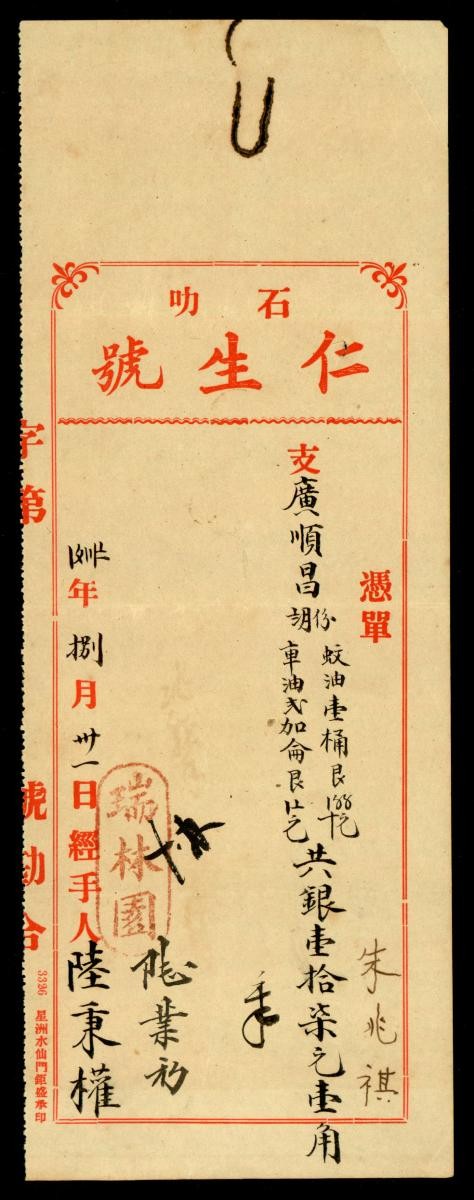 石叻
仁生號
憑單
支廣順昌
份
蚊油壹桶艮
車油弍加侖艮
共銀壹拾柒元壹角
朱兆祺
年捌月卅一日經手人陸秉權
瑞林園
字第
號勘合
3326 星洲水仙門鉅盛承印